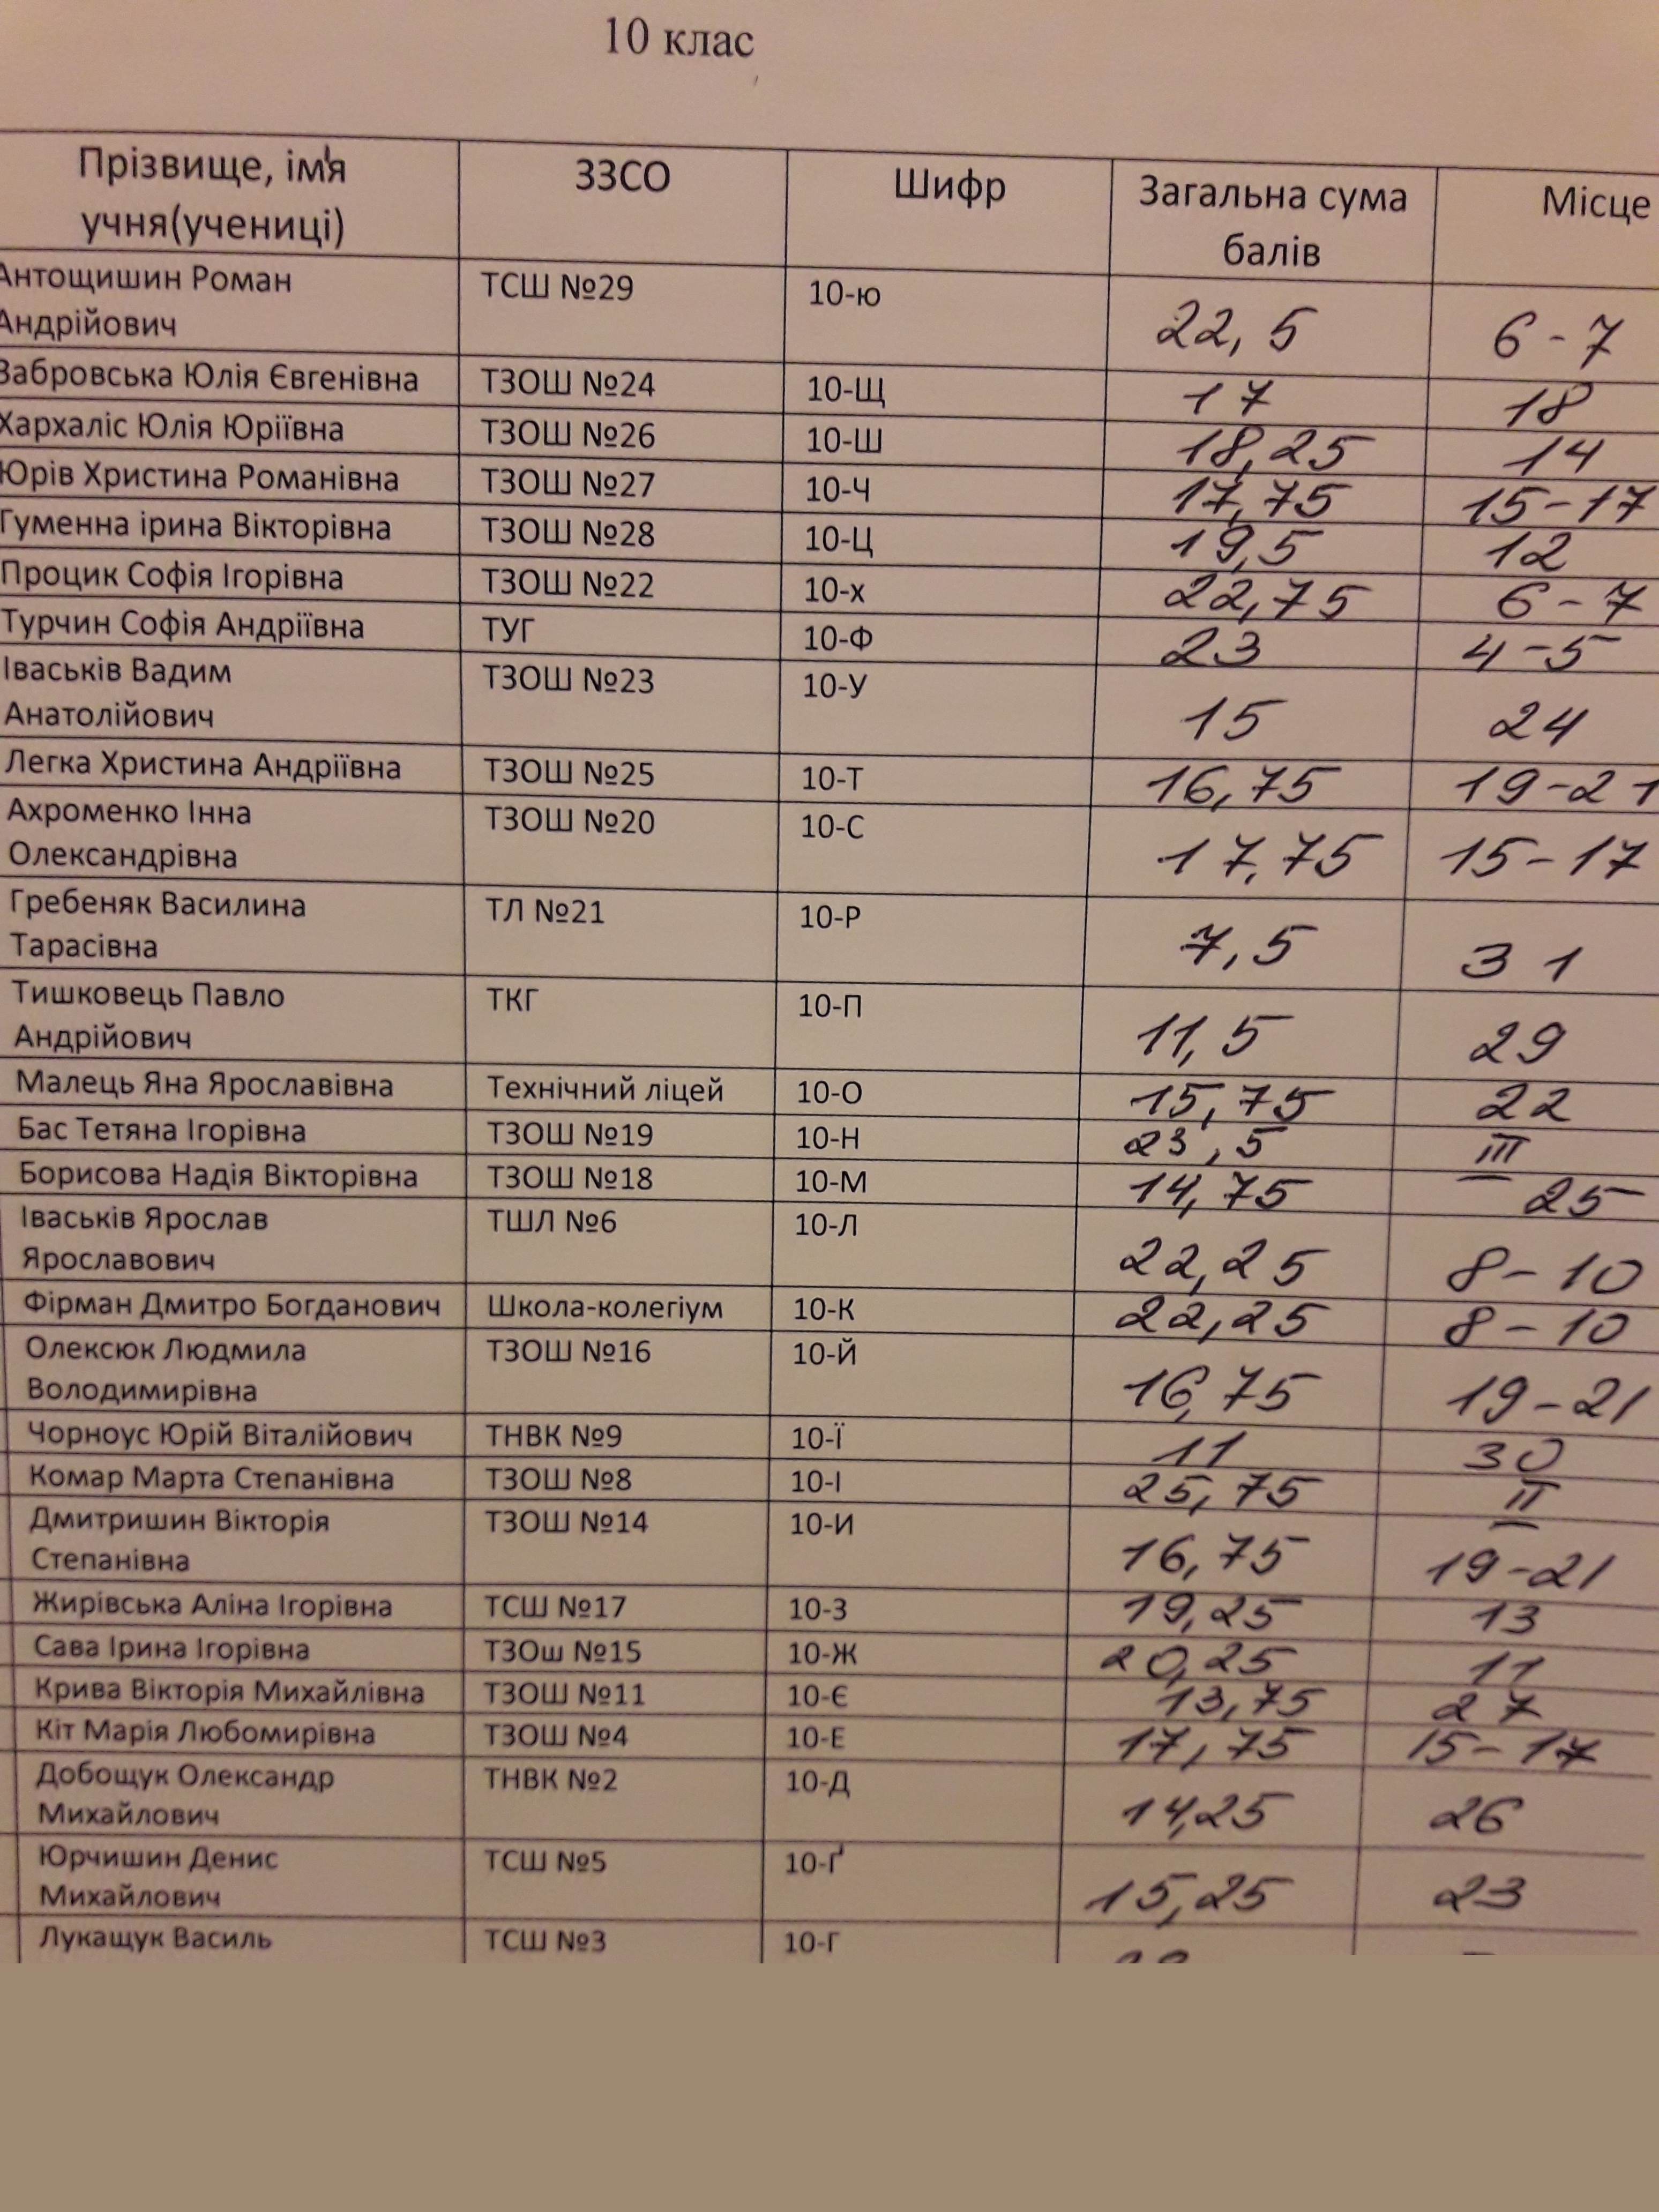 10 клас
Прізвище, ім'я ЗЗСО Шифр Загальна сума Місце
учня(учениці) балів
Антощишин Роман ТСШ №29 10-ю 22,5 6-7
Андрійович
Забровська Юлія Євгенівна ТЗОШ №24 10-Щ 17 18
Хархаліс Юлія Юріївна ТЗОШ №26 10-Ш 18,25 14
Юрів Христина Романівна ТЗОШ №27 10-Ч 17,75 15-17
Гуменна ірина Вікторівна ТЗОШ №28 10-Ц 19,5 12
Процик Софія Ігорівна ТЗОШ №22 10-х 22,75 6-7
Турчин Софія Андріївна ТУГ 10-Ф 23 4-5
Іваськів Вадим ТЗОШ №23 10-У 15 24
Анатолійович
Легка Христина Андріївна ТЗОШ №25 10-Т 16,75 19-21
Ахроменко Інна ТЗОШ №20 10-С 17,75 15-17
Олександрівна
Гребеняк Василина ТЛ №21 10-Р 7,5 31
Тарасівна
Тишковець Павло ТКГ 10-П 11,5 29
Андрійович
Малець Яна Ярославівна Технічний ліцей 10-О 15,75 22
Бас Тетяна Ігорівна ТЗОШ №19 10-Н 23,5 III
Борисова Надія Вікторівна ТЗОШ №18 10-М 14,75 25
Іваськів Ярослав ТШЛ №6 10-Л 22,25 8-10
Ярославович
Фірман Дмитро Богданович Школа-колегіум 10-К 22,25 8-10
Олексюк Людмила ТЗОШ №16 10-Й 16,75 19-21
Володимирівна
Чорноус Юрій Віталійович ТНВК №9 10-Ї 11 30
Комар Марта Степанівна ТЗОШ №8 10-І 25,75 II
Дмитришин Вікторія ТЗОШ №14 10-И 16,75 19-21
Степанівна
Жирівська Аліна Ігорівна ТСШ №17 10-З 19,25 13
Сава Ірина Ігорівна ТЗОш №15 10-Ж 20,25 11
Крива Вікторія Михайлівна ТЗОШ №11 10-Є 13,75 27
Кіт Марія Любомирівна ТЗОШ №4 10-Е 17,75 15-17
Добощук Олександр ТНВК №2 10-Д 14,25 26
Михайлович
Юрчишин Денис ТСШ №5 10-Ґ 15,25 23
Михайлович
Лукащук Василь ТСШ №3 10-Г